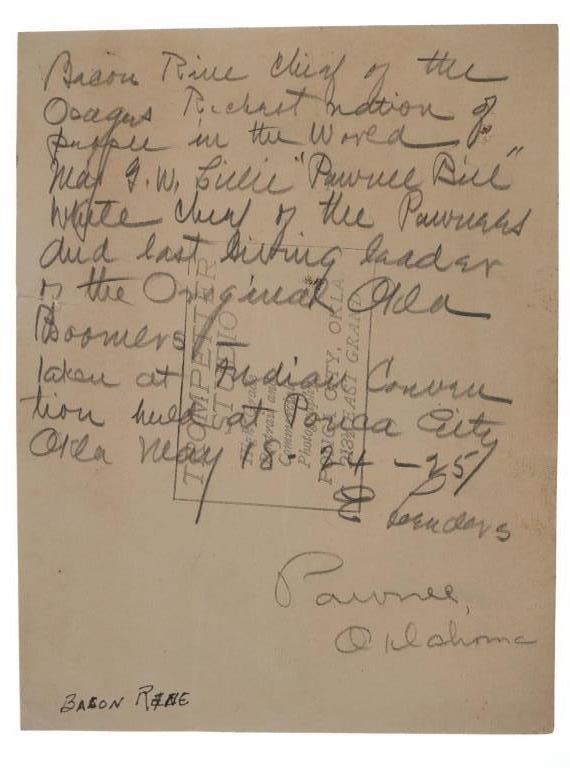 Bacon Rine chief of the
Osages Richest nation of
people in the World
Maj G.W. Lillie "Pawnee Bill"
White chief of the Pawnees
and last living leader
of the Original Okla
Boomers! —
taken at Indian Conven
tion held at Ponca City
Okla May 18 - 24 - 25
Pawnee,
Oklahoma
BACON RINE
TROMPETER
STUDIO
Portrait and
Commercial
Photographer
PONCA CITY, OKLA
EAST GRAND